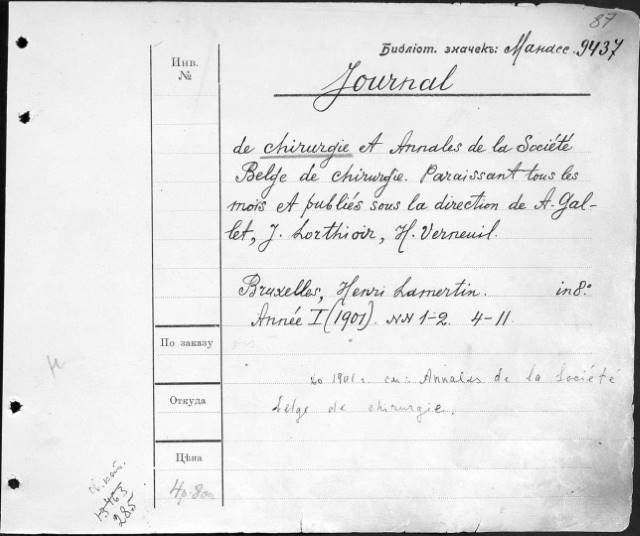 87
Библіот. значекъ: Манасс. 9437
Инв.
№
Journal
de chirurgie et Annales de la Société
Belge de chirurgie. Paraissant tous les
mois et publiés sous la direction de A. Gal-
let, J. Lorthioir, H. Verneuil.
Bruxelles, Henri Lamertin. in 8.°
Année I (1901). NN 1-2. 4-11.
По заказу
до 1901 г. см: Annales de la Société
belge de chirurgie.
Откуда
Цѣна
4р. 80
13463
285